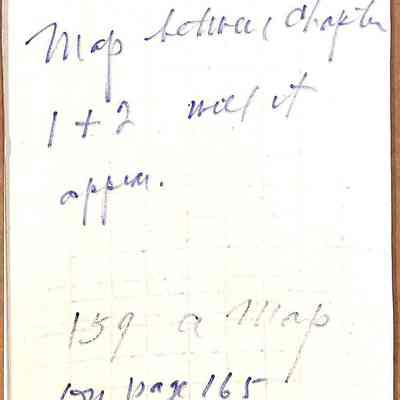 Map between chapter
1 + 2 will it
appear.
159 a Map
on page 165